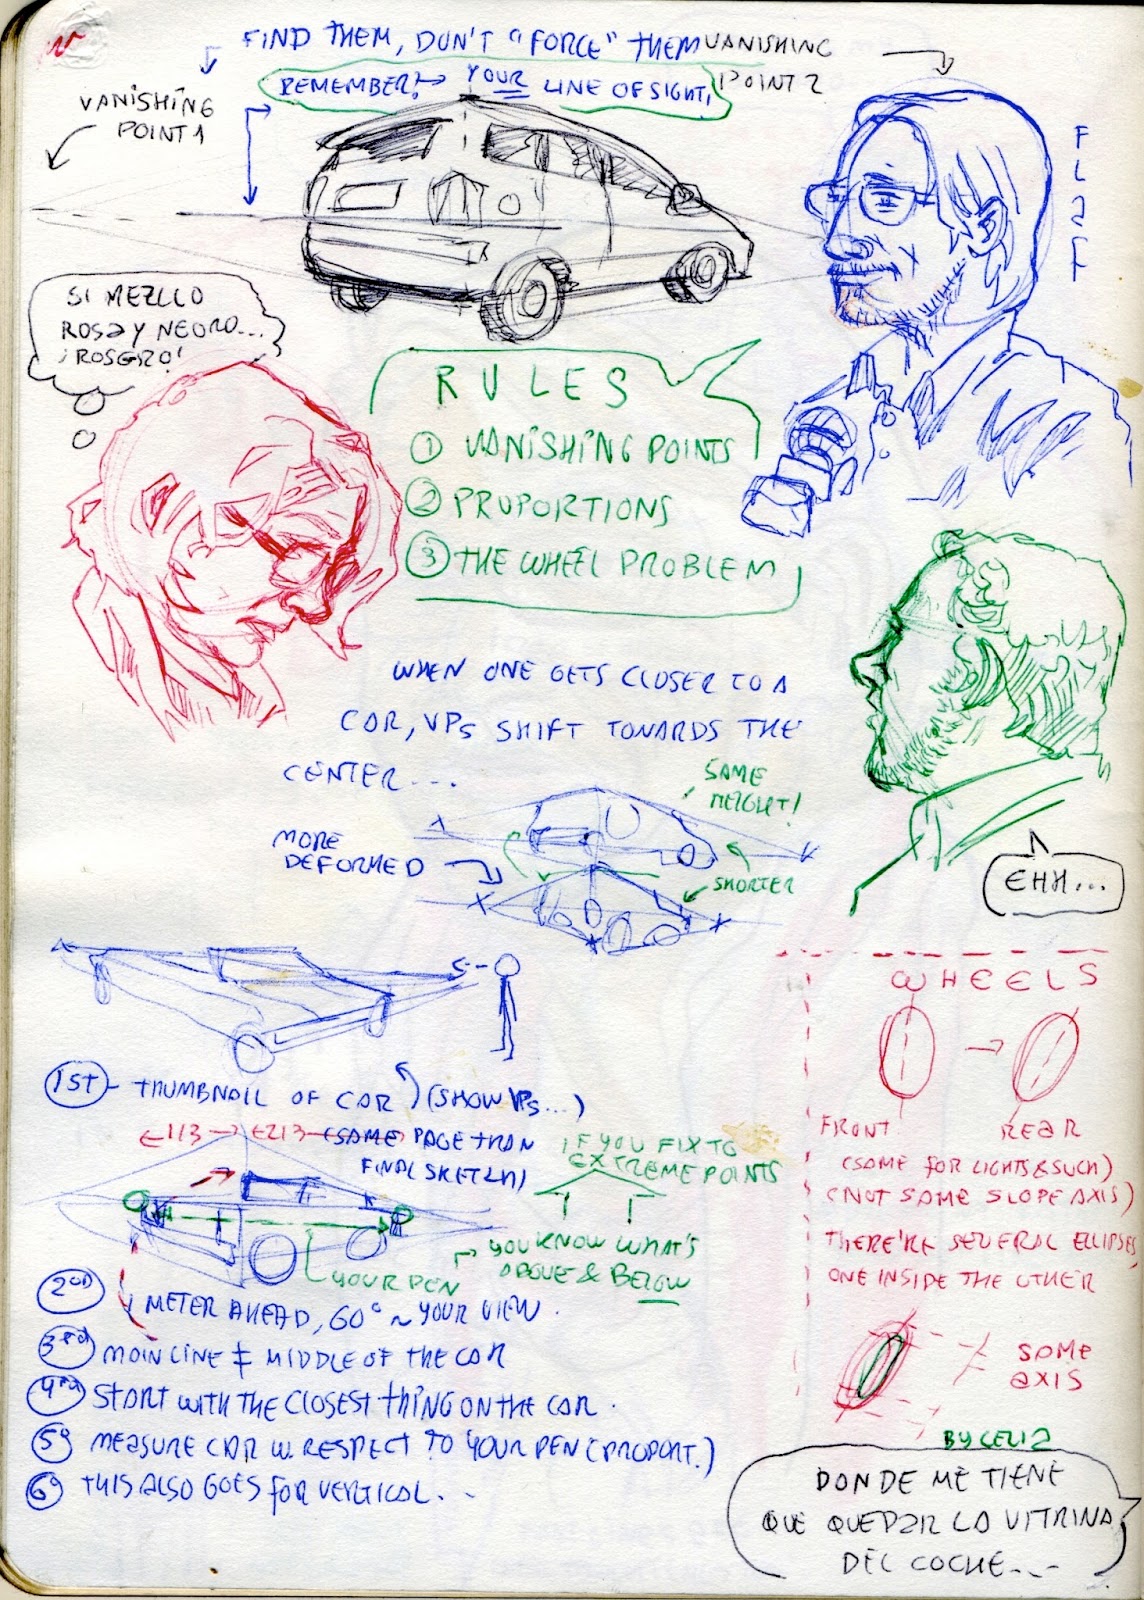 FIND THEM, DON'T "FORCE" THEM
REMEMBER! → YOUR LINE OF SIGHT!
VANISHING
POINT 2
VANISHING
POINT 1
FLaF
SI MEZCLO
ROSa Y NEGRO...
¡ROSGRO!
RULES
① VANISHING POINTS
② PROPORTIONS
③ THE WHEEL PROBLEM
WHEN ONE GETS CLOSER TO A
CAR, VPs SHIFT TOWARDS THE
CENTER...
SAME
HEIGHT!
MORE
DEFORMED
SHORTER
EHH...
1ST - THUMBNAIL OF CAR (SHOW VPs...)
(SAME PAGE THAN
FINAL SKETCH)
←1/3→ ←2/3→
IF YOU FIX TO
EXTREME POINTS
YOU KNOW WHAT'S
ABOVE & BELOW
YOUR PEN
2nd 1 METER AHEAD, 60° ~ YOUR VIEW.
3rd MAIN LINE ≠ MIDDLE OF THE CAR
START WITH THE CLOSEST THING ON THE CAR.
5º MEASURE CAR W. RESPECT TO YOUR PEN (PROPORT.)
6º THIS ALSO GOES FOR VERTICAL...
WHEELS
FRONT
REAR
(SAME FOR LIGHTS & SUCH)
(NOT SAME SLOPE AXIS)
THERE'RE SEVERAL ELLIPSES,
ONE INSIDE THE OTHER
SAME
AXIS
DONDE ME TIENE
QUE QUEDAR LA VITRINA
DEL COCHE...